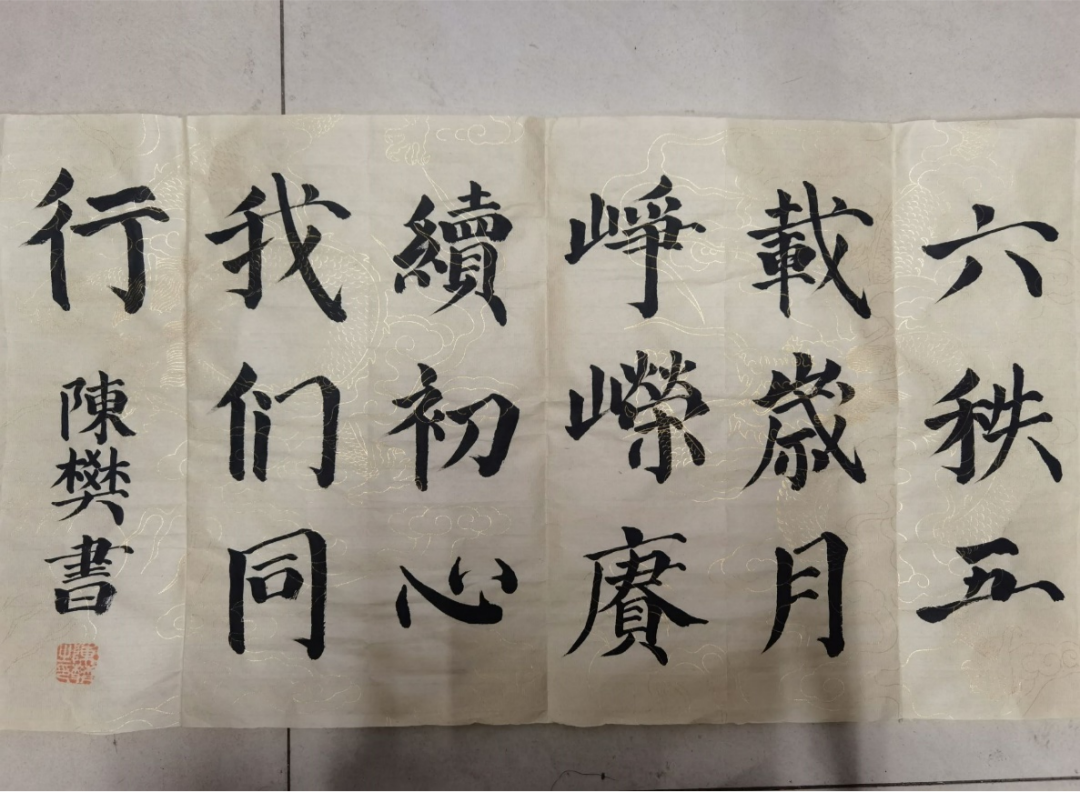 六秩五
載歲月
崢嶸賡
續初心
我们同
行
陳樊書